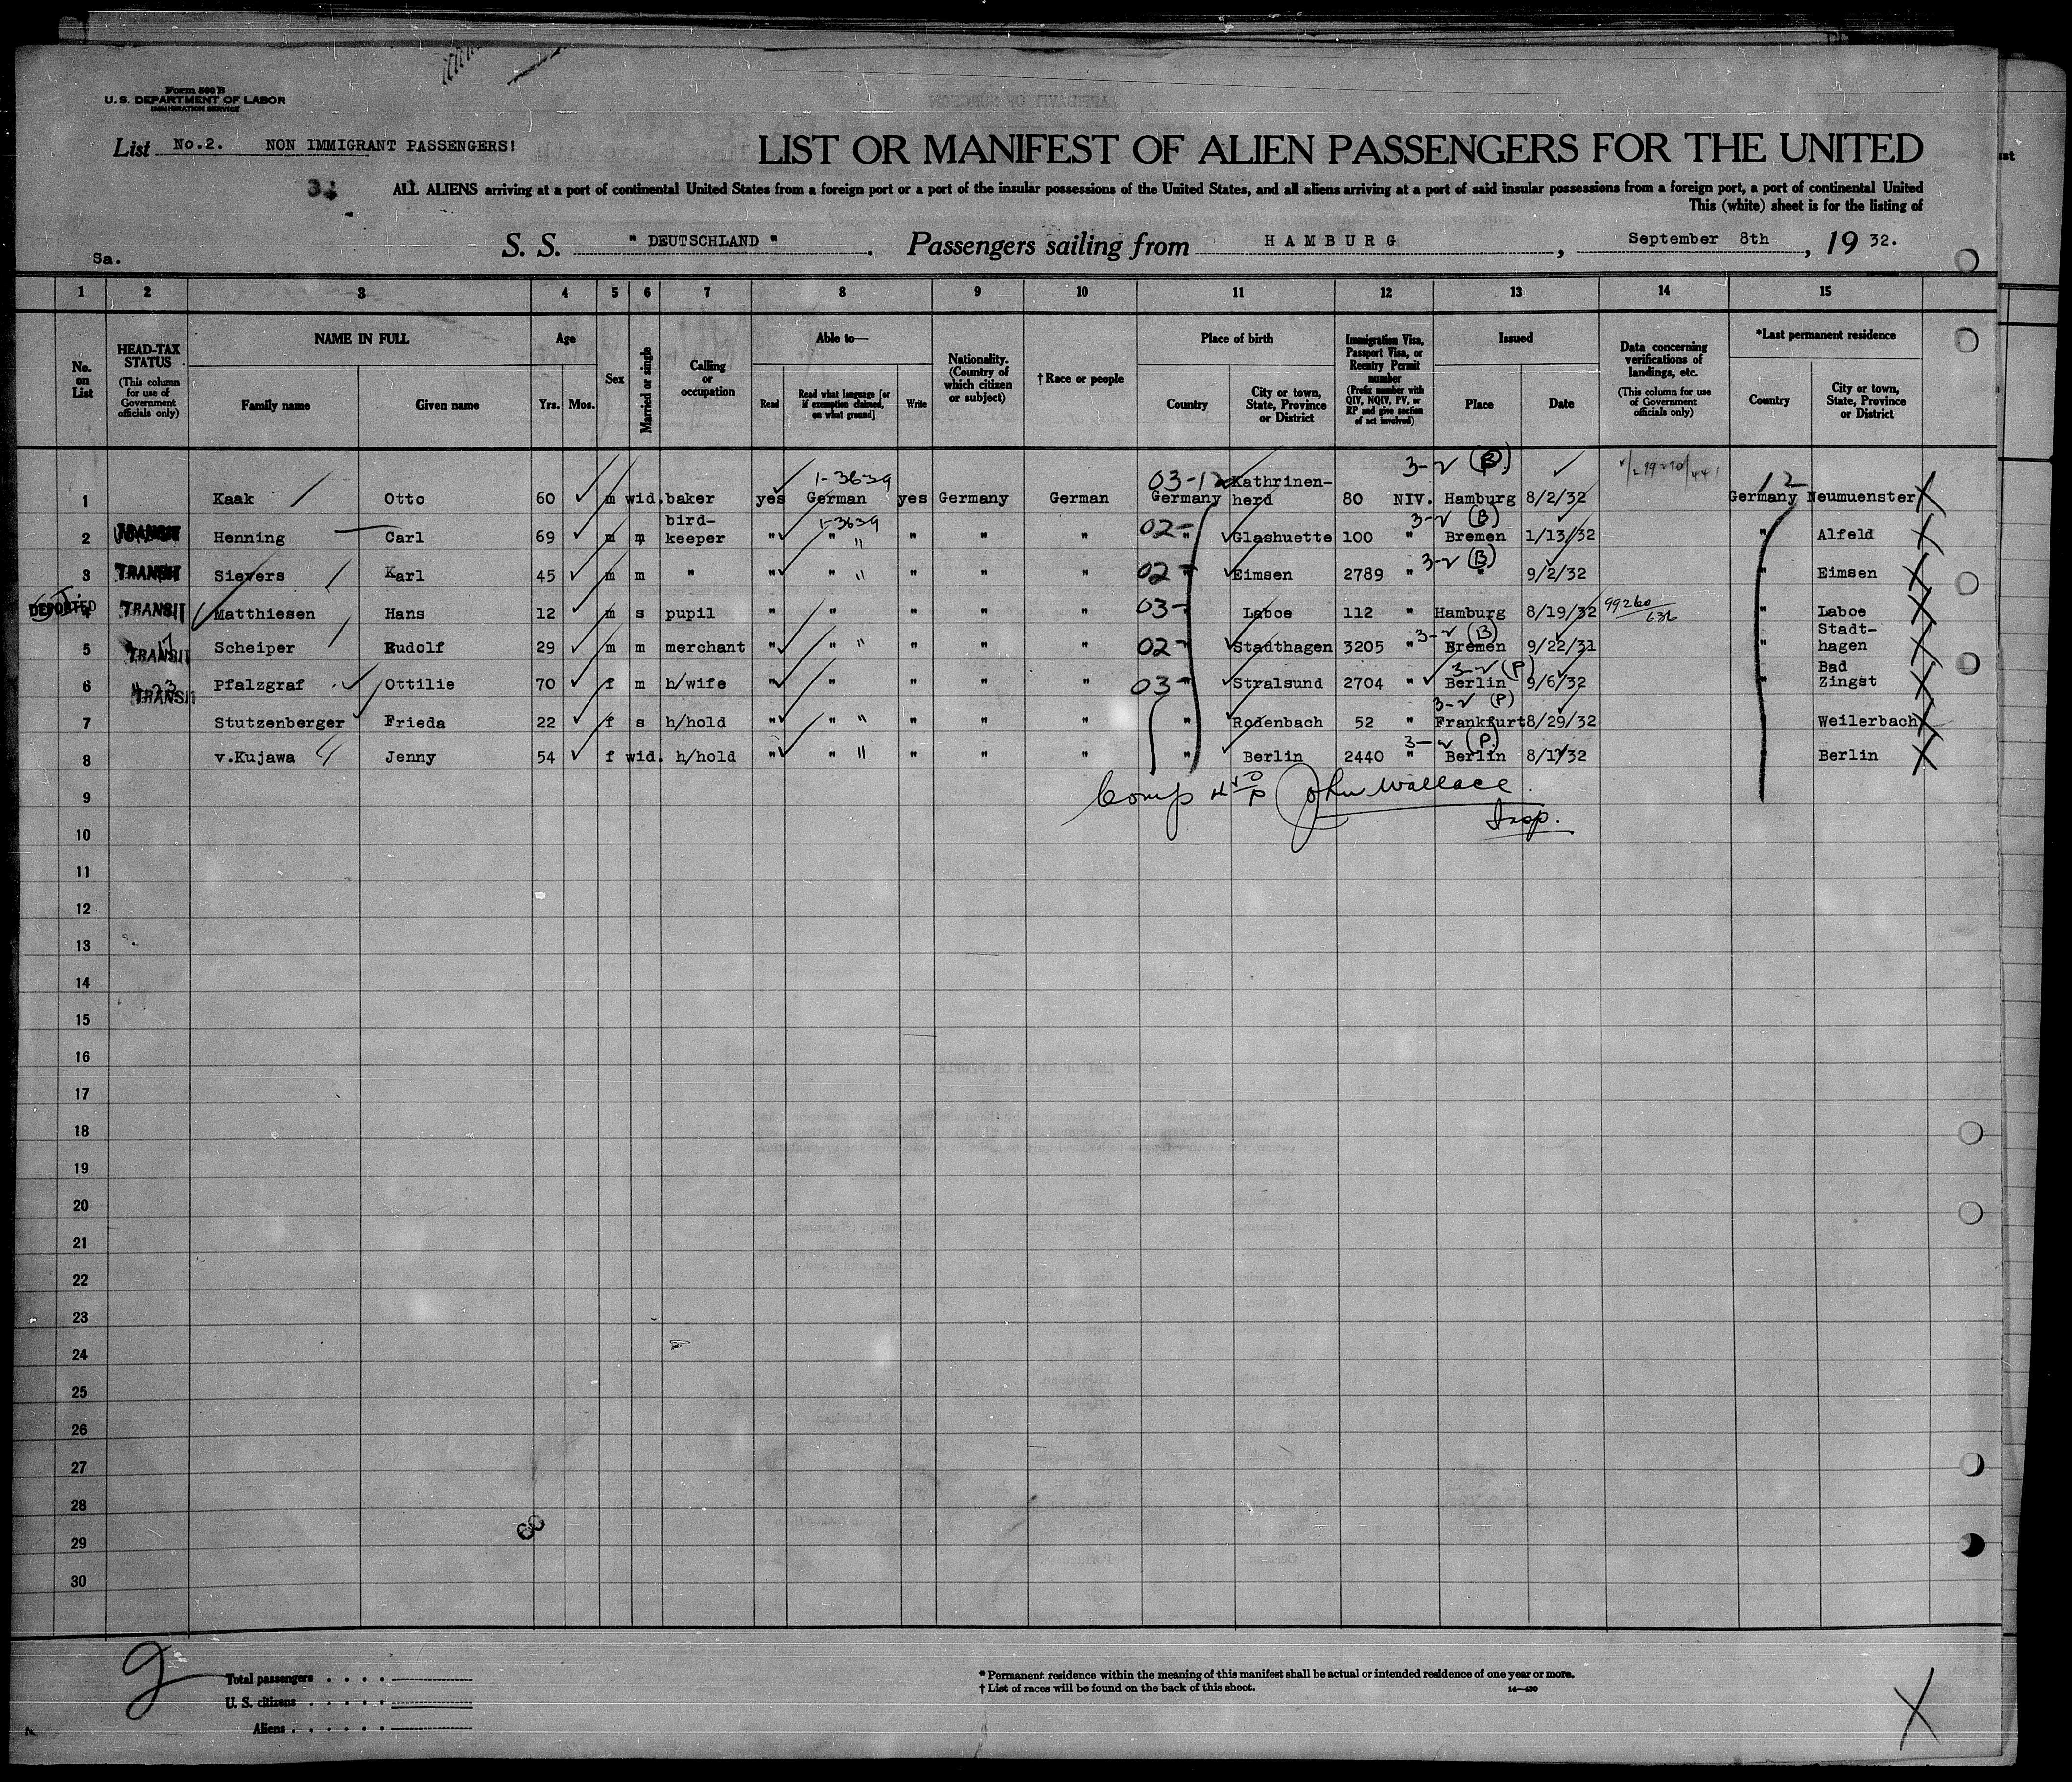 Form 500 B
U. S. DEPARTMENT OF LABOR
IMMIGRATION SERVICE
List No.2. NON IMMIGRANT PASSENGERS!
LIST OR MANIFEST OF ALIEN PASSENGERS FOR THE UNITED
ALL ALIENS arriving at a port of continental United States from a foreign port or a port of the insular possessions of the United States, and all aliens arriving at a port of said insular possessions from a foreign port, a port of continental United
This (white) sheet is for the listing of
S. S. " DEUTSCHLAND ". Passengers sailing from HAMBURG, September 8th, 19 32.
Sa.
1 2 3 4 5 6 7 8 9 10 11 12 13 14 15
No. on List
HEAD-TAX STATUS (This column for use of Government officials only)
NAME IN FULL
Family name
Given name
Age
Yrs. Mos.
Sex
Married or single
Calling or occupation
Able to—
Read
Read what language [or if exemption claimed, on what ground]
Write
Nationality. (Country of which citizen or subject)
†Race or people
Place of birth
Country
City or town, State, Province or District
Immigration Visa, Passport Visa, or Reentry Permit number (Prefix number with QIV, NQIV, PV, or RP and give section of act involved)
Issued
Place
Date
Data concerning verifications of landings, etc. (This column for use of Government officials only)
*Last permanent residence
Country
City or town, State, Province or District
1-3639 03-12 Kathrinen- 3-2 (P) 12
1 Kaak Otto 60 m wid. baker yes German yes Germany German Germany herd 80 NIV. Hamburg 8/2/32 Germany Neumuenster
bird- 1-3639 02- 3-2 (B)
2 TRANSIT Henning Carl 69 m m keeper " " " " " " Glashuette 100 " Bremen 1/13/32 " Alfeld
3-2 (B)
3 TRANSIT Sievers Karl 45 m m " " " " " " 02- " Eimsen 2789 " " 9/2/32 " Eimsen
DEPORTED 4 TRANSIT Matthiesen Hans 12 m s pupil " " " " " 03- " Laboe 112 " Hamburg 8/19/32 99260/636 " Laboe
3-2 (B) Stadt-
5 TRANSIT Scheiper Rudolf 29 m m merchant " " " " " 02- " Stadthagen 3205 " Bremen 9/22/31 " hagen
3-2 (P) Bad
6 TRANSIT Pfalzgraf Ottilie 70 f m h/wife " " " " " 03- " Stralsund 2704 " Berlin 9/6/32 " Zingst
3-2 (P)
7 Stutzenberger Frieda 22 f s h/hold " " " " " " Rodenbach 52 " Frankfurt 8/29/32 " Weilerbach
3-2 (P)
8 v.Kujawa Jenny 54 f wid. h/hold " " " " " " Berlin 2440 " Berlin 8/17/32 " Berlin
9 Comp John Wallace.
Insp.
10
11
12
13
14
15
16
17
18
19
20
21
22
23
24
25
26
27
28
29
30
Total passengers . . . .
U. S. citizens . . . . .
Aliens . . . . . .
* Permanent residence within the meaning of this manifest shall be actual or intended residence of one year or more.
† List of races will be found on the back of this sheet.
14—430